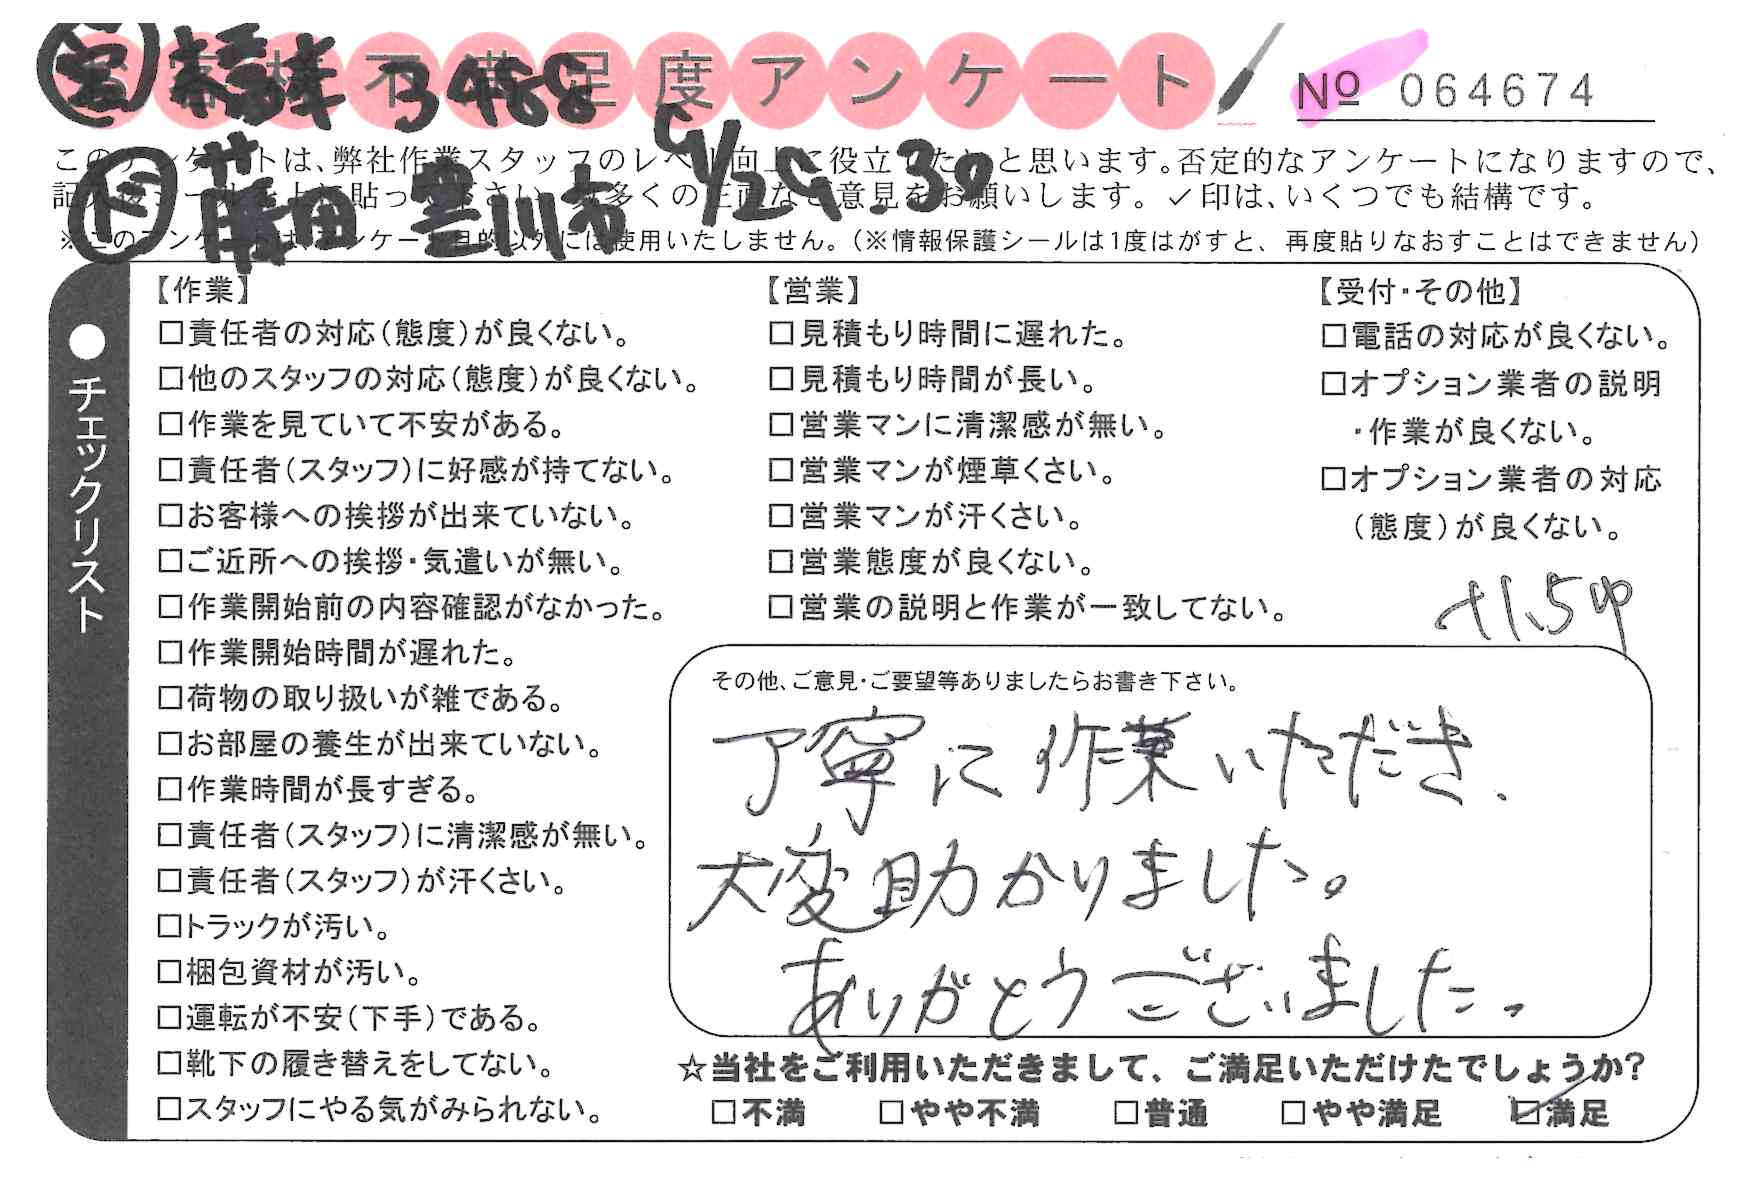 お客様不満足度アンケート
№ 064674
3468
9/29.30
藤田 豊川市
このアンケートは、弊社作業スタッフのレベル向上に役立てたいと思います。否定的なアンケートになりますので、
記入後シールを上に貼って下さい。数多くの正直なご意見をお願いします。✓印は、いくつでも結構です。
※このアンケートは、アンケート目的以外には使用いたしません。（※情報保護シールは1度はがすと、再度貼りなおすことはできません）
●チェックリスト
【作業】
□責任者の対応（態度）が良くない。
□他のスタッフの対応（態度）が良くない。
□作業を見ていて不安がある。
□責任者（スタッフ）に好感が持てない。
□お客様への挨拶が出来ていない。
□ご近所への挨拶・気遣いが無い。
□作業開始前の内容確認がなかった。
□作業開始時間が遅れた。
□荷物の取り扱いが雑である。
□お部屋の養生が出来ていない。
□作業時間が長すぎる。
□責任者（スタッフ）に清潔感が無い。
□責任者（スタッフ）が汗くさい。
□トラックが汚い。
□梱包資材が汚い。
□運転が不安（下手）である。
□靴下の履き替えをしてない。
□スタッフにやる気がみられない。
【営業】
□見積もり時間に遅れた。
□見積もり時間が長い。
□営業マンに清潔感が無い。
□営業マンが煙草くさい。
□営業マンが汗くさい。
□営業態度が良くない。
□営業の説明と作業が一致してない。
【受付・その他】
□電話の対応が良くない。
□オプション業者の説明
・作業が良くない。
□オプション業者の対応
（態度）が良くない。
その他、ご意見・ご要望等ありましたらお書き下さい。
丁寧に作業いただき、
大変助かりました。
ありがとうございました。
☆当社をご利用いただきまして、ご満足いただけたでしょうか?
□不満 □やや不満 □普通 □やや満足 ☑満足